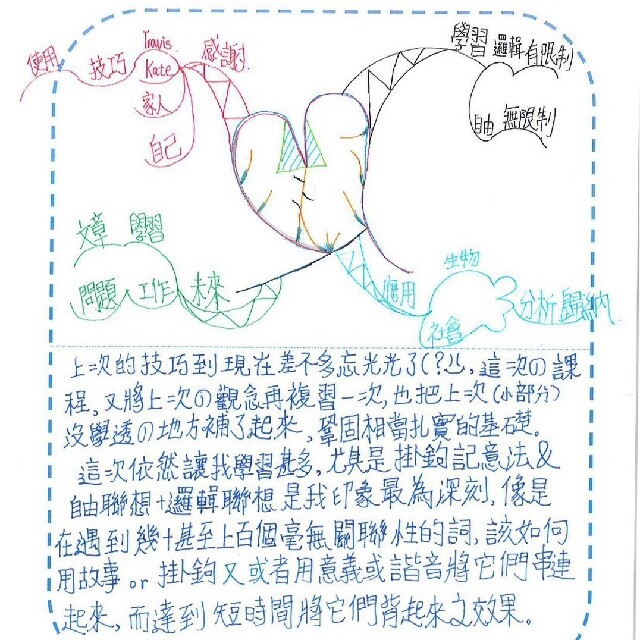 使用 技巧 Travis 感謝
Kate
家人
自己
學習 邏輯有限制
自由 無限制
文章 學習
問題 工作 未來
應用 生物
社會 分析歸納
上次的技巧到現在差不多忘光光了(?ㄩ, 這次の課
程, 又將上次の觀念再複習一次, 也把上次(小部分)
沒學透の地方補了起來, 鞏固相當扎實的基礎。
這次依然讓我學習甚多, 尤其是掛鉤記意法&
自由聯想+邏輯聯想是我印象最為深刻, 像是
在遇到幾十甚至上百個毫無關聯性的詞, 該如何
用故事 or 掛鉤又或者用意義或諧音將它們串連
起來, 而達到短時間將它們背起來之效果。